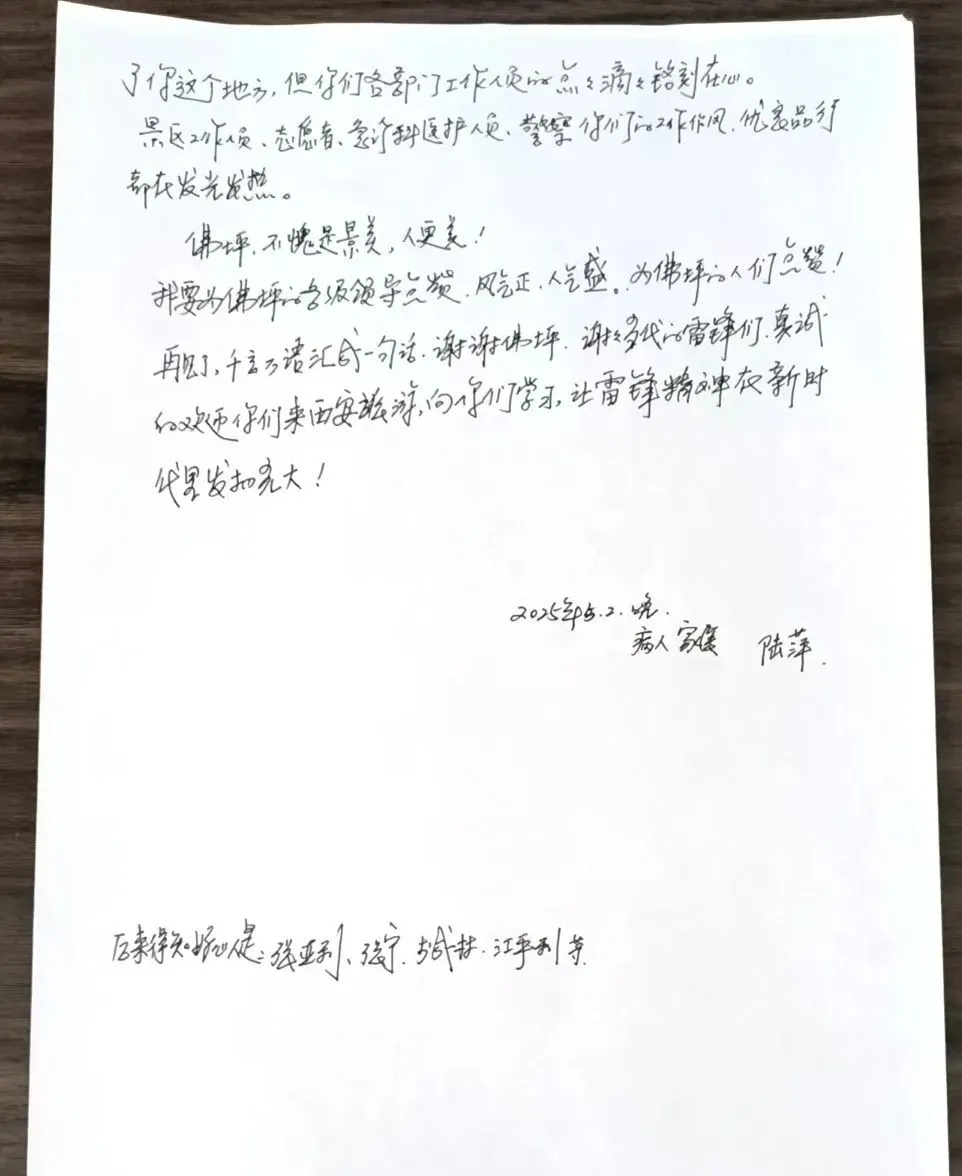 了你这个地方,但你们各部门工作人员的点々滴々铭刻在心。
景区工作人员、志愿者、急诊科医护人员、警察你们的工作作风、优良品行
都在发光发热。
佛坪,不愧是景美,人更美!
我要为佛坪的各级领导点赞,风气正,人气盛。为佛坪的人们点赞!
再见了,千言万语汇成一句话,谢谢佛坪,谢谢时代的雷锋们,真诚
的欢迎你们来西安旅游,向你们学习,让雷锋精神在新时
代里发扬光大!
2025年5.2.晚.
病人家属 陆萍.
后来得知好心人是:张亚利、张宁、江平利等